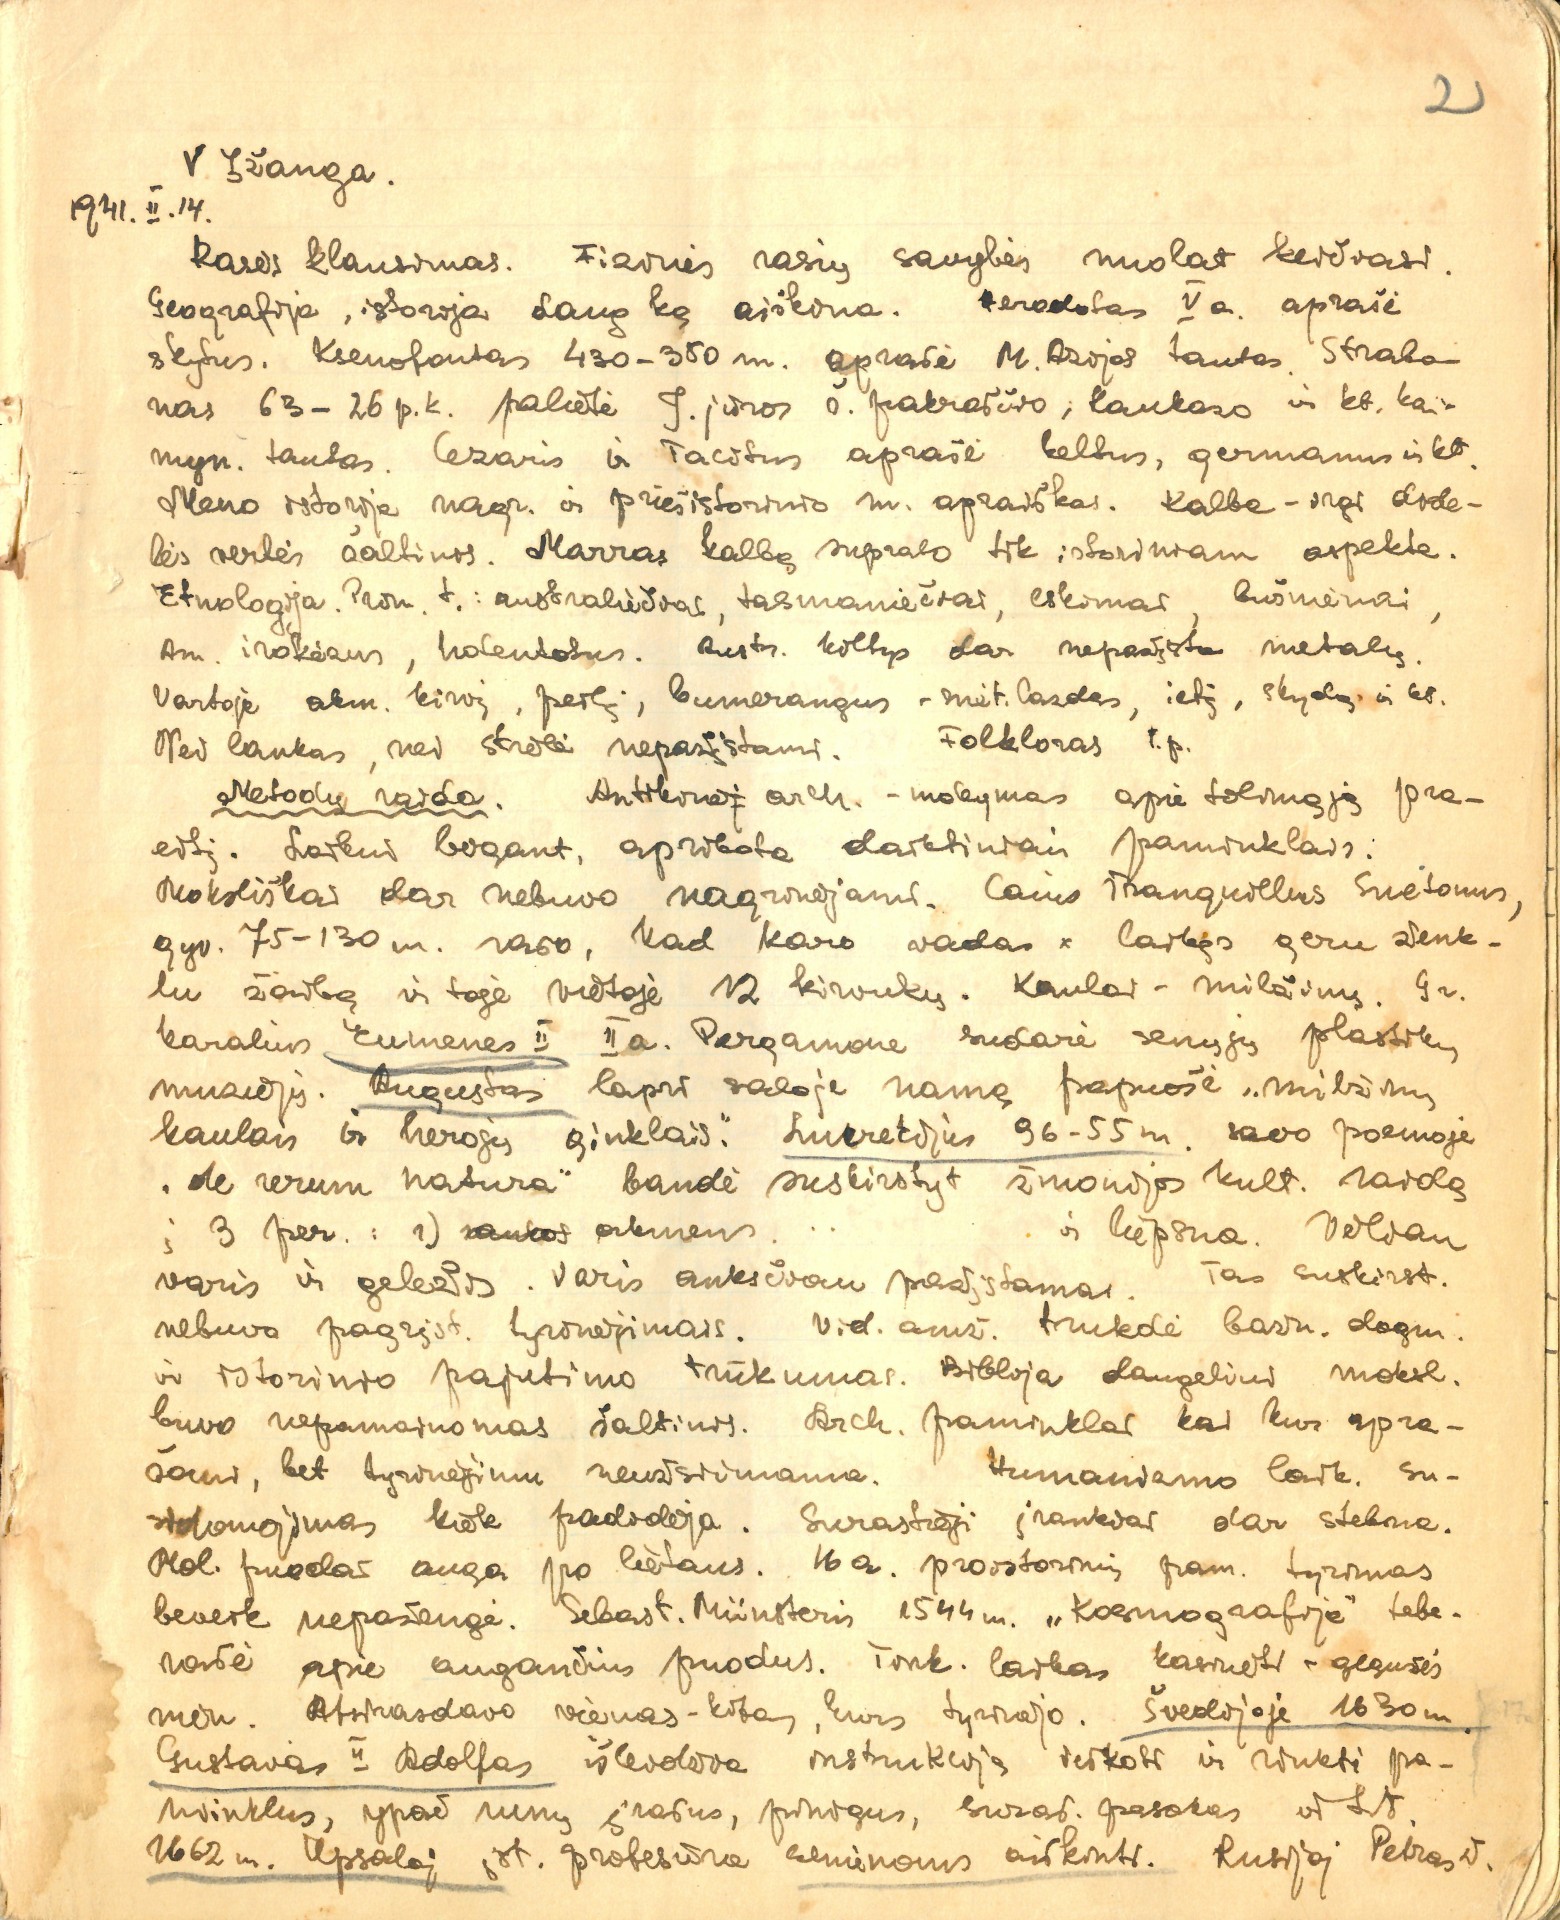 2
V Įžanga.
1941. II. 14.
Rasės klausimas. Fizinės rasių savybės nuolat keičiasi.
Geografija, istorija daug ką aiškina. Herodotas V a. aprašė
skytus. Ksenofontas 430-350 m. aprašė M. Azijos tautas. Strabo-
nas 63-26 p.k. palietė J. jūros š. pakraščio, Kaukazo ir kt. kai-
myn. tautas. Cezaris ir Tacitus aprašė keltus, germanus ir kt.
Meno istorija nagr. ir priešistorinio m. apraiškas. Kalba - irgi dide-
lės vertės šaltinis. Marras kalbą suprato tik istoriniam aspekte.
Etnologija. Prim. t.: australiečiai, tasmaniečiai, eskimai, bušmėnai,
Am. irokėzus, hotentotus. Austr. kiltys dar nepažįsta metalų.
Vartoja akm. kirvį, peilį, bumerangus - mėt. lazdas, ietį, skydą ir kt.
Nei lankas, nei strėlė nepažįstami. Folkloras t.p.
Metodų raida. Antikinėj arch. - mokymas apie tolimąją pra-
eitį. Laikui bėgant, apribota daiktiniais paminklais.
Moksliškai dar nebuvo nagrinėjami. Caius Tranquillus Suetonus,
gyv. 75-130 m. rašo, kad karo vadas x laikęs geru ženk-
lu žaibą ir toje vietoje 12 kirvukų. Kaulai - milžinų. Gr.
karalius Eumenes II II a. Pergamone sudarė senųjų plastikų
muziejų. Augustas Capri saloje namą papuošė „milžinų
kaulais ir herojų ginklais". Lukrecijus 96-55 m. savo poemoje
„de rerum natura" bandė suskirstyt žmonijos kult. raidą
į 3 per.: 1) akmens. ir liepsna. Vėliau
varis ir geležis. Varis anksčiau pažįstamas. Tas suskirst.
nebuvo pagrįst. tyrinėjimais. Vid. amž. trukdė bažn. dogm.
ir istorinio pajutimo trūkumas. Biblija daugeliui moksl.
buvo nepamainomas šaltinis. Arch. paminklai kai kur apra-
šomi, bet tyrinėjimu neužsiimama. Humanizmo laik. su-
sidomėjimas kiek padidėja. Surastieji įrankiai dar stebina.
Mol. puodai auga po lietaus. 16 a. proistorinių pam. tyrimas
beveik nepažengė. Sebast. Münsteris 1544 m. „Kosmografija" tebe-
rašė apie augančius puodus. Tink. laikas kasinėti - gegužės
mėn. Atsirasdavo vienas-kitas, kurs tyrinėjo. Švedijoje 1630 m.
Gustavas II Adolfas išleidžia instrukciją ieškoti ir rinkti pa-
minklus, ypač runų įrašus, pinigus, suraš. pasakas ir t.t.
1662 m. Upsaloj įst. profesūra senienoms aiškinti. Rusijoj Petras D.